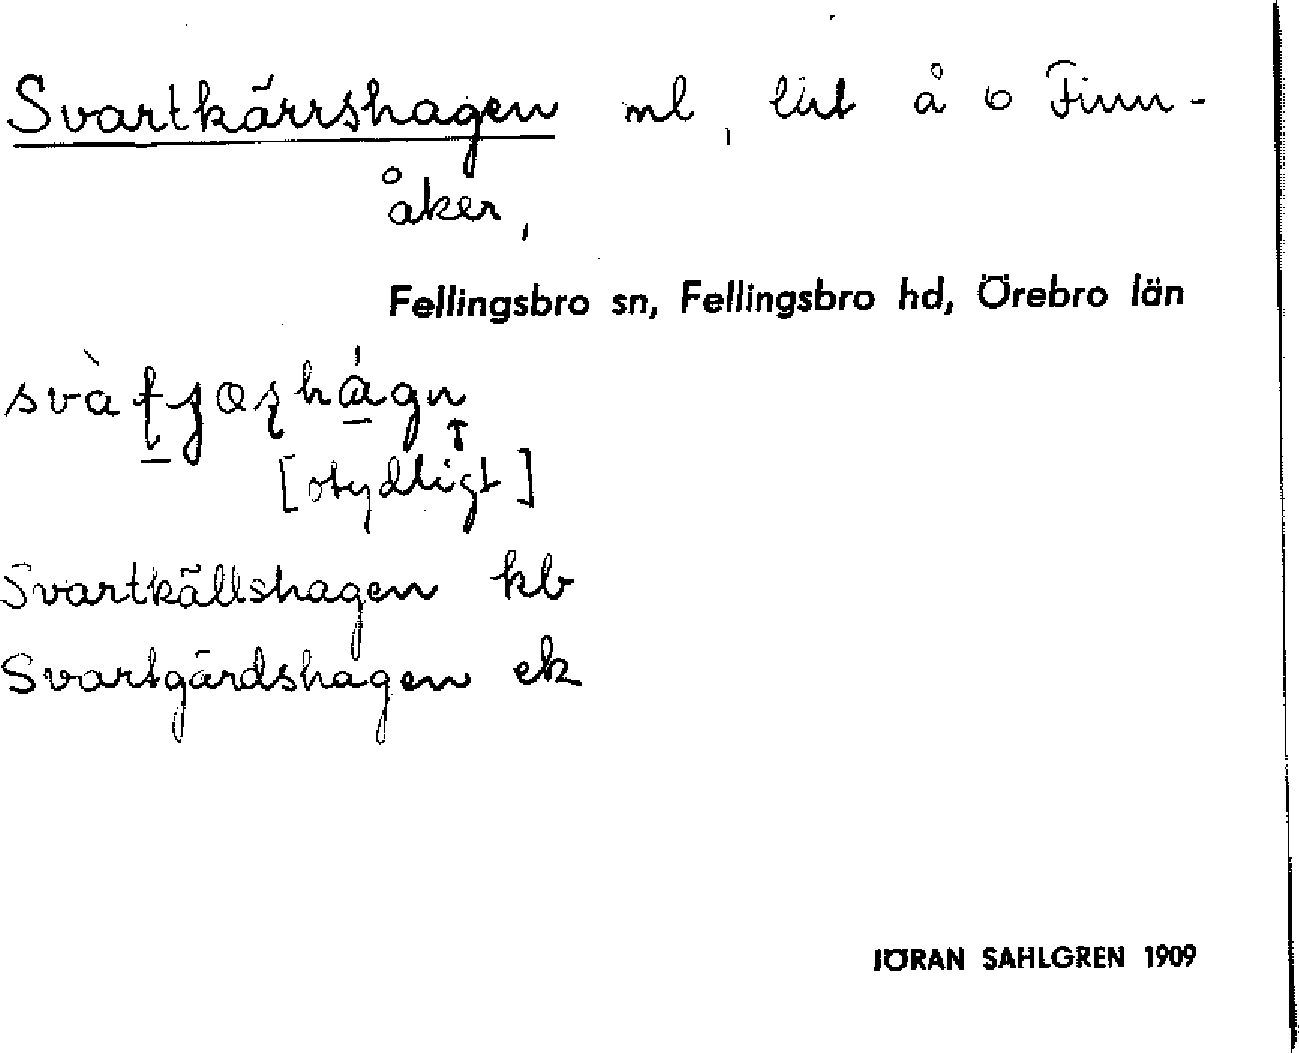 Svartkärrshagen ml, litt å o Finn-
åker,
Fellingsbro sn, Fellingsbro hd, Örebro län
[otydligt]
Svartkällshagen kb
Svartgärdshagen ek
JÖRAN SAHLGREN 1909